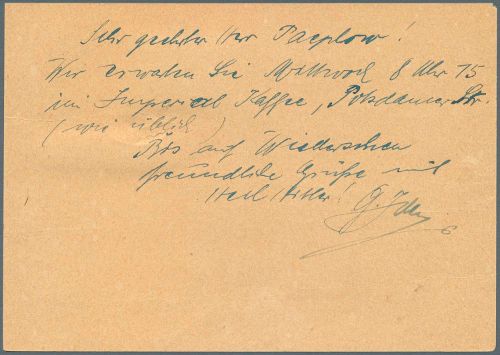 Sehr geehrter Herr Paeplow!
Wir erwarten Sie Mittwoch 8 Uhr 15
im Imperial Kaffee, Potsdamer Str.
(wie üblich)
Bis auf Wiedersehen
freundliche Grüße mit
Heil Hitler! G.